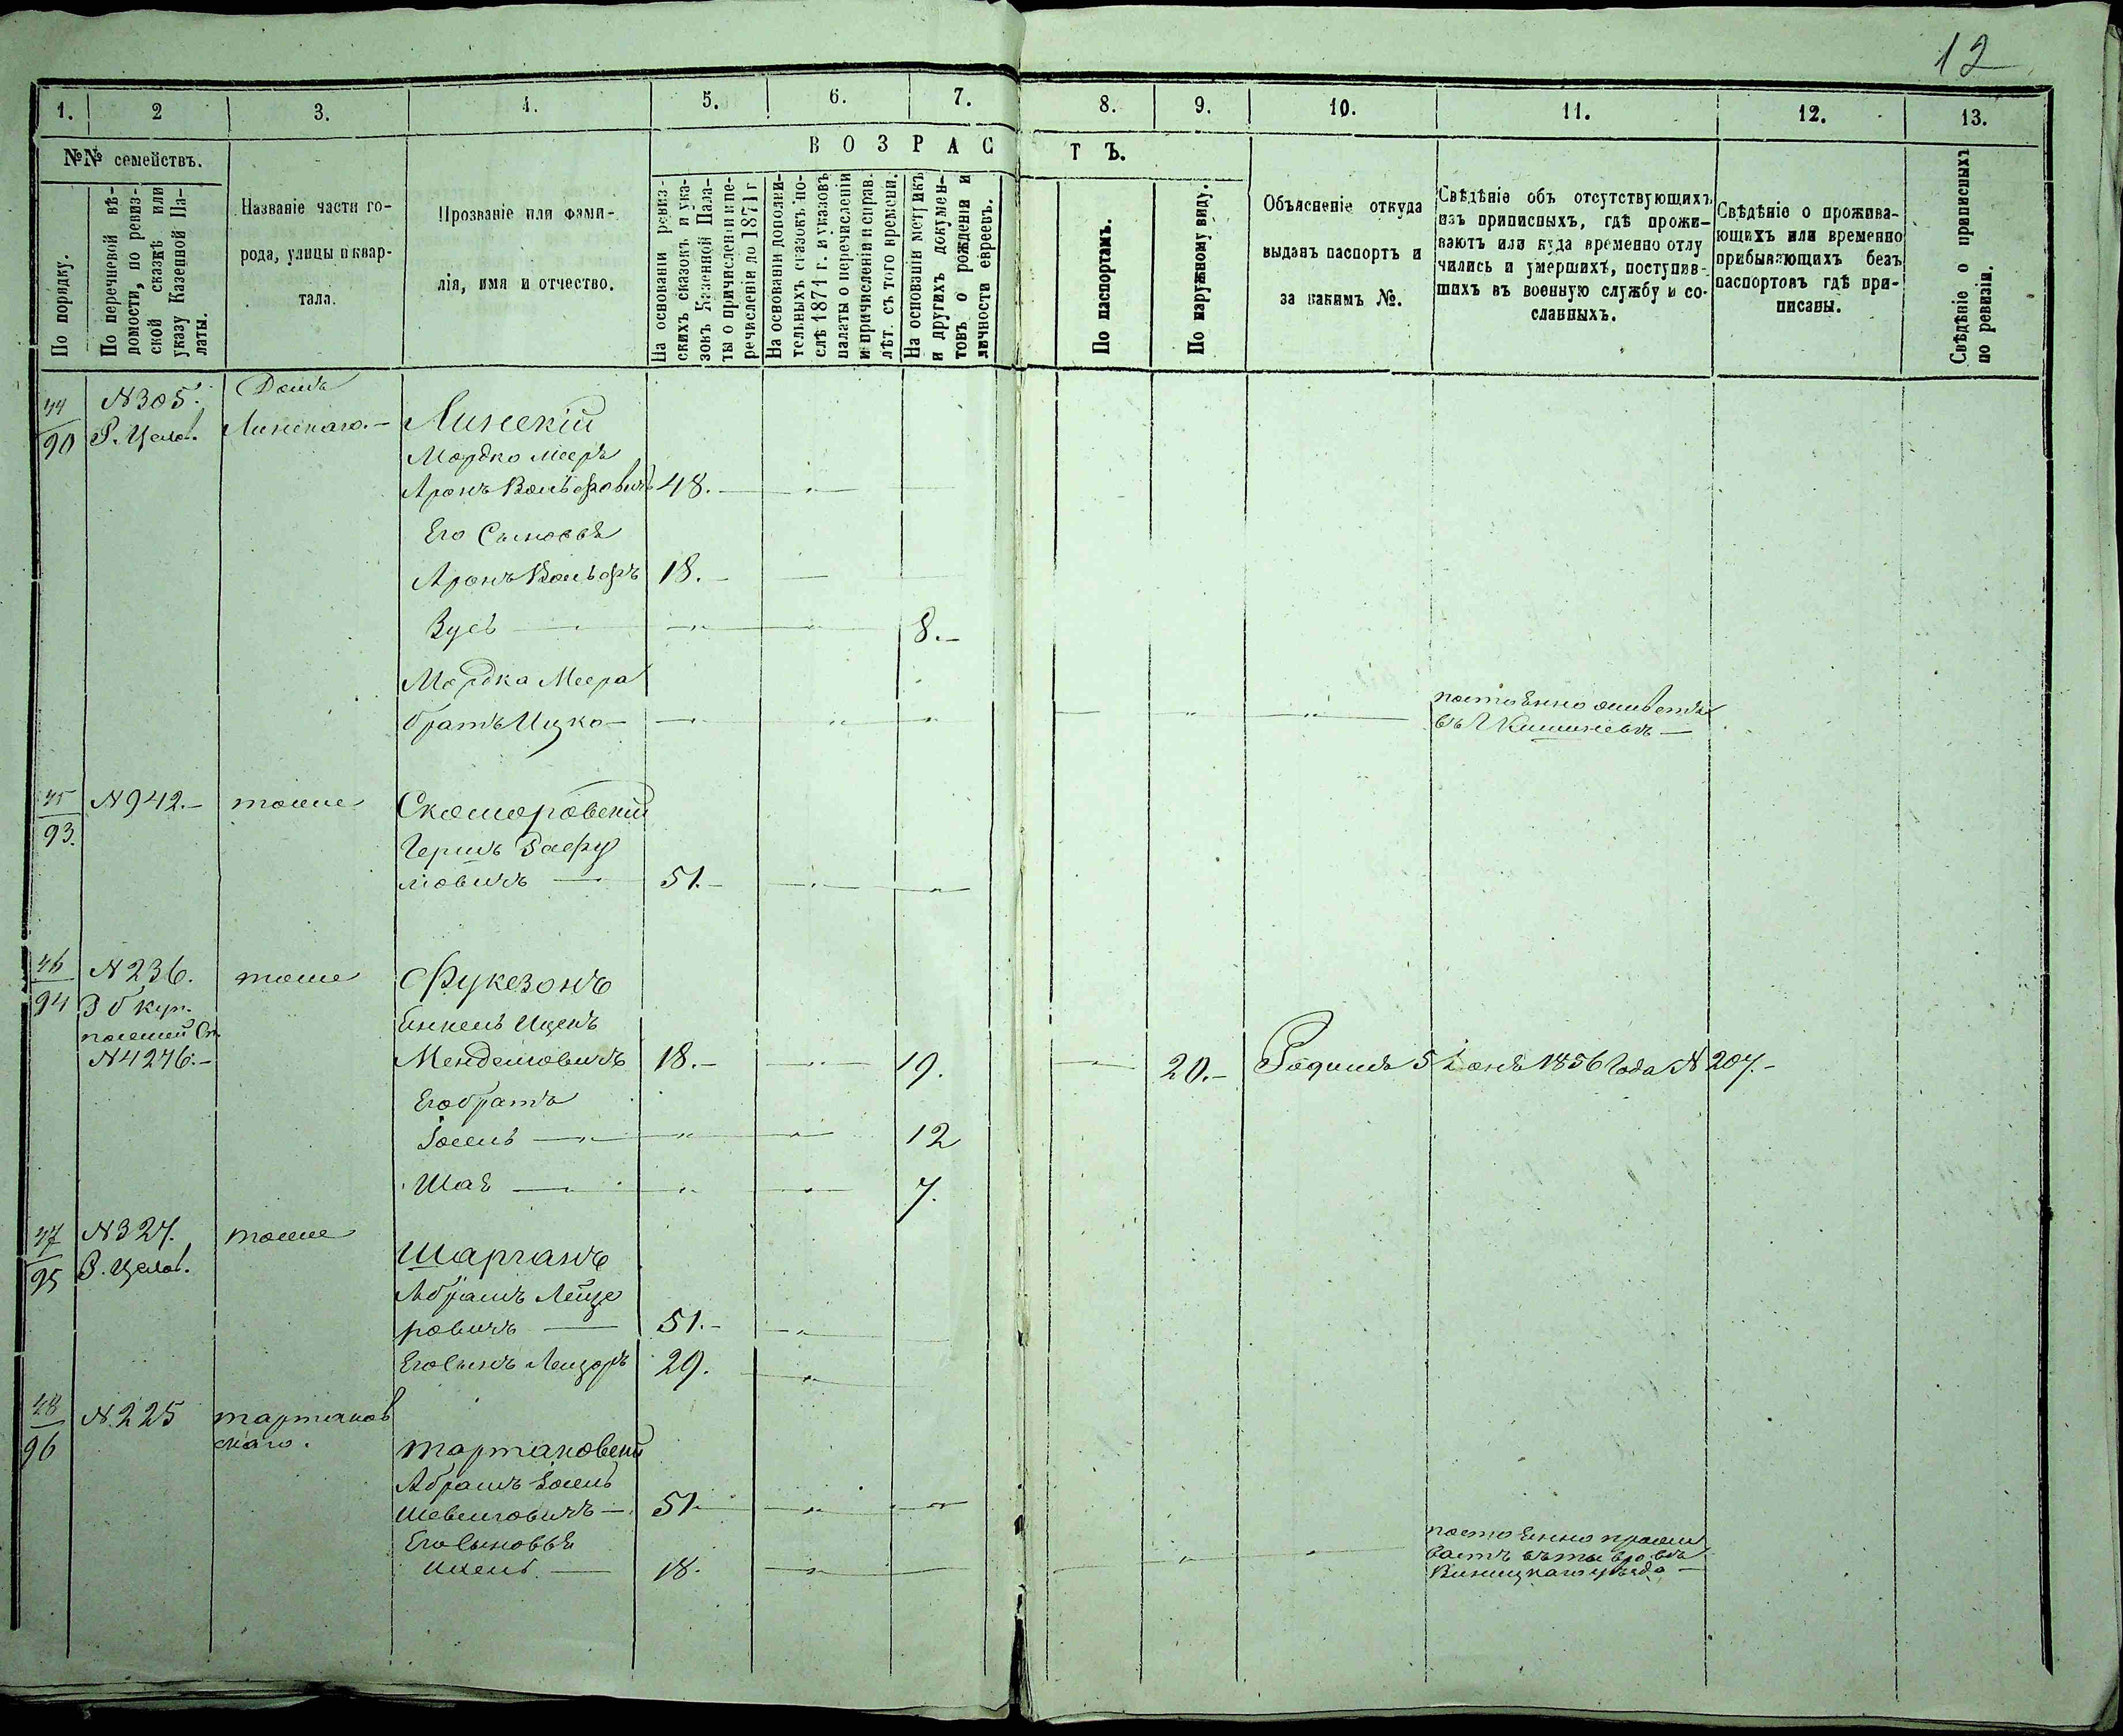 12
1. 2 3. 4. 5. 6. 7. 8. 9. 10. 11. 12. 13.
№№ семействъ.
ВОЗРАСТЪ.
По порядку.
По перечневой вѣ-
домости, по ревиз-
ской сказкѣ или
указу Казенной Па-
латы.
Названіе части го-
рода, улицы и квар-
тала.
Прозваніе или фами-
лія, имя и отчество.
На основаніи ревиз-
скихъ сказокъ и ука-
зовъ Казенной Пала-
ты о причисленіи и пе-
речисленіи до 1871 г.
На основаніи дополни-
тельныхъ сказокъ по-
слѣ 1871 г. и указовъ
палаты о перечисленіи
и причисленіи и справ.
лѣт. съ того времени.
На основаніи метрикъ
и другихъ докумен-
товъ о рожденіи и
личности евреевъ.
По паспортамъ.
По наружному виду.
Объясненіе откуда
выданъ паспортъ и
за какимъ №.
Свѣдѣніе объ отсутствующихъ
изъ приписныхъ, гдѣ прожи-
ваютъ или куда временно отлу
чились и умершихъ, поступив-
шихъ въ военную службу и со-
сланныхъ.
Свѣдѣніе о прожива-
ющихъ или временно
прибывающихъ безъ
паспортовъ гдѣ при-
писаны.
Свѣдѣніе о приписныхъ
по ревизіи.
44 N305. Домъ
90 Р. Целов. Линскаго. Линскій
Мордко Мееръ
Аронъ Вольфовичъ 48.
Его Сыновья
Аронъ Вольфъ 18.
Зусь 8.
Мордка Меера
братъ Ицко постоянно живетъ
въ Г Кишиневѣ
45 N942. тоже Скоморовскій
93. Гершъ
ловичъ 51.
46 N236. тоже Фукезонъ
94 3 б куп.
Ицекъ
N4276. Менделовичъ 18. 19. 20. Родился 5 1856 Года N 207.
Его братъ
Іосель 12
Шая 7.
47 N327. тоже Шарганъ
95 Р. Целов.
Абрамъ Лейзе
ровичъ 51.
Его Сынъ Лейзоръ 29.
48 N.225 тартаков
96 скаго. тартаковскій
Абрамъ Іосель
Шевелговичъ 51
Его Сыновья
18. постоянно прожи
ваетъ въ
Виницкаго уѣзда